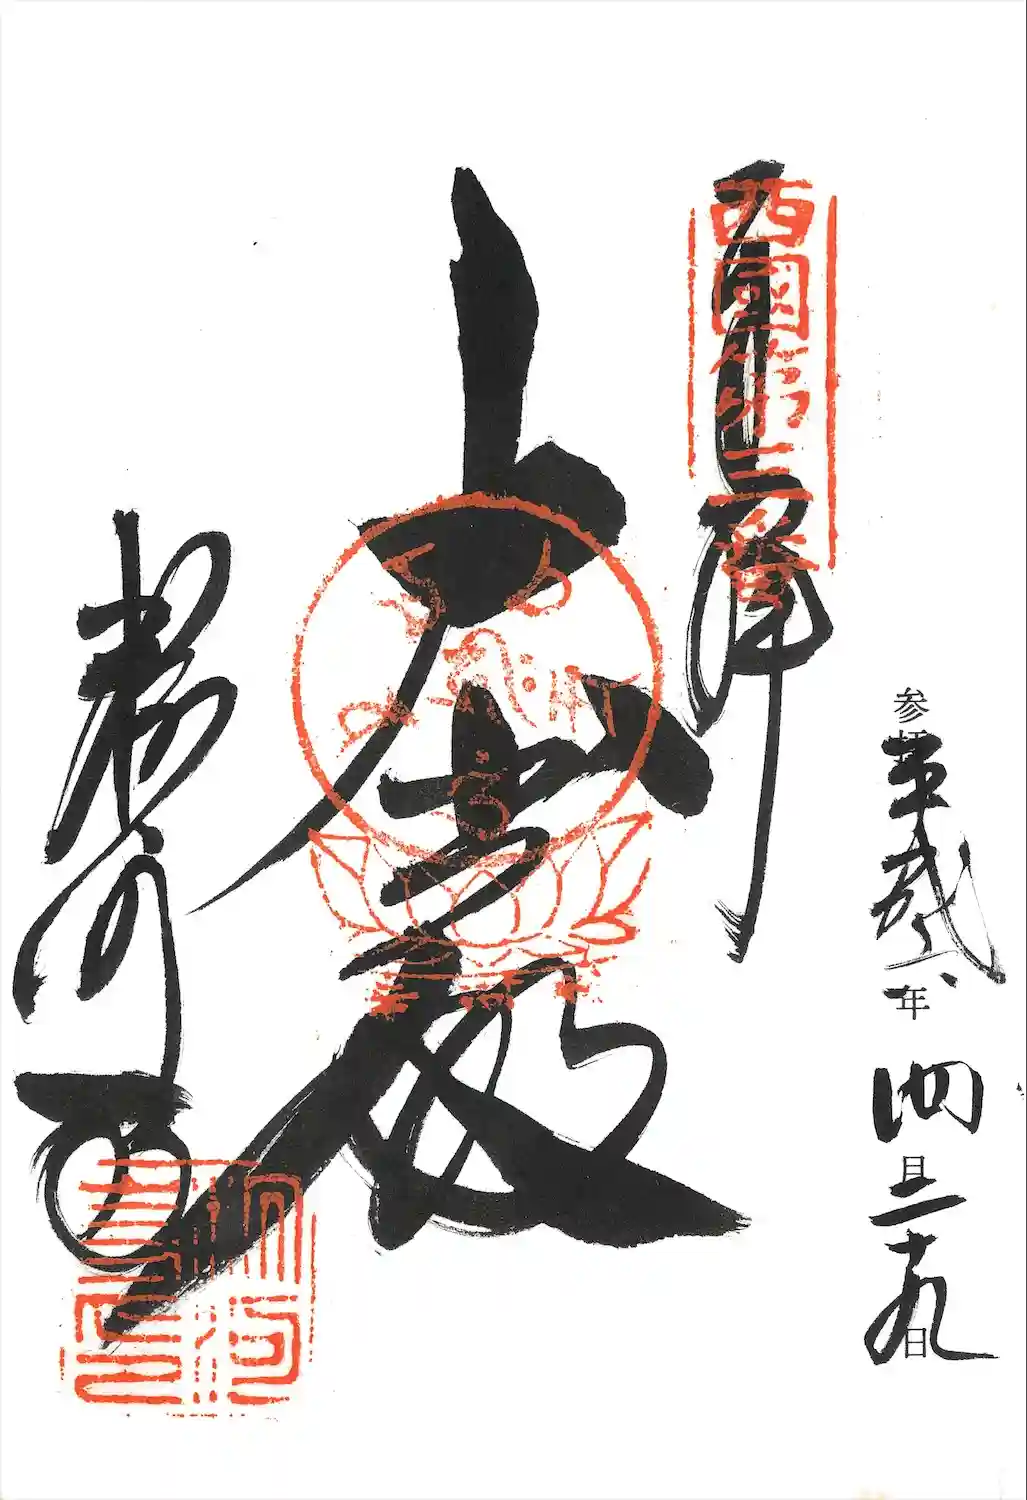 奉拝
西國第三番
大悲殿
粉河寺
参拝 平成 年 四月二十九日